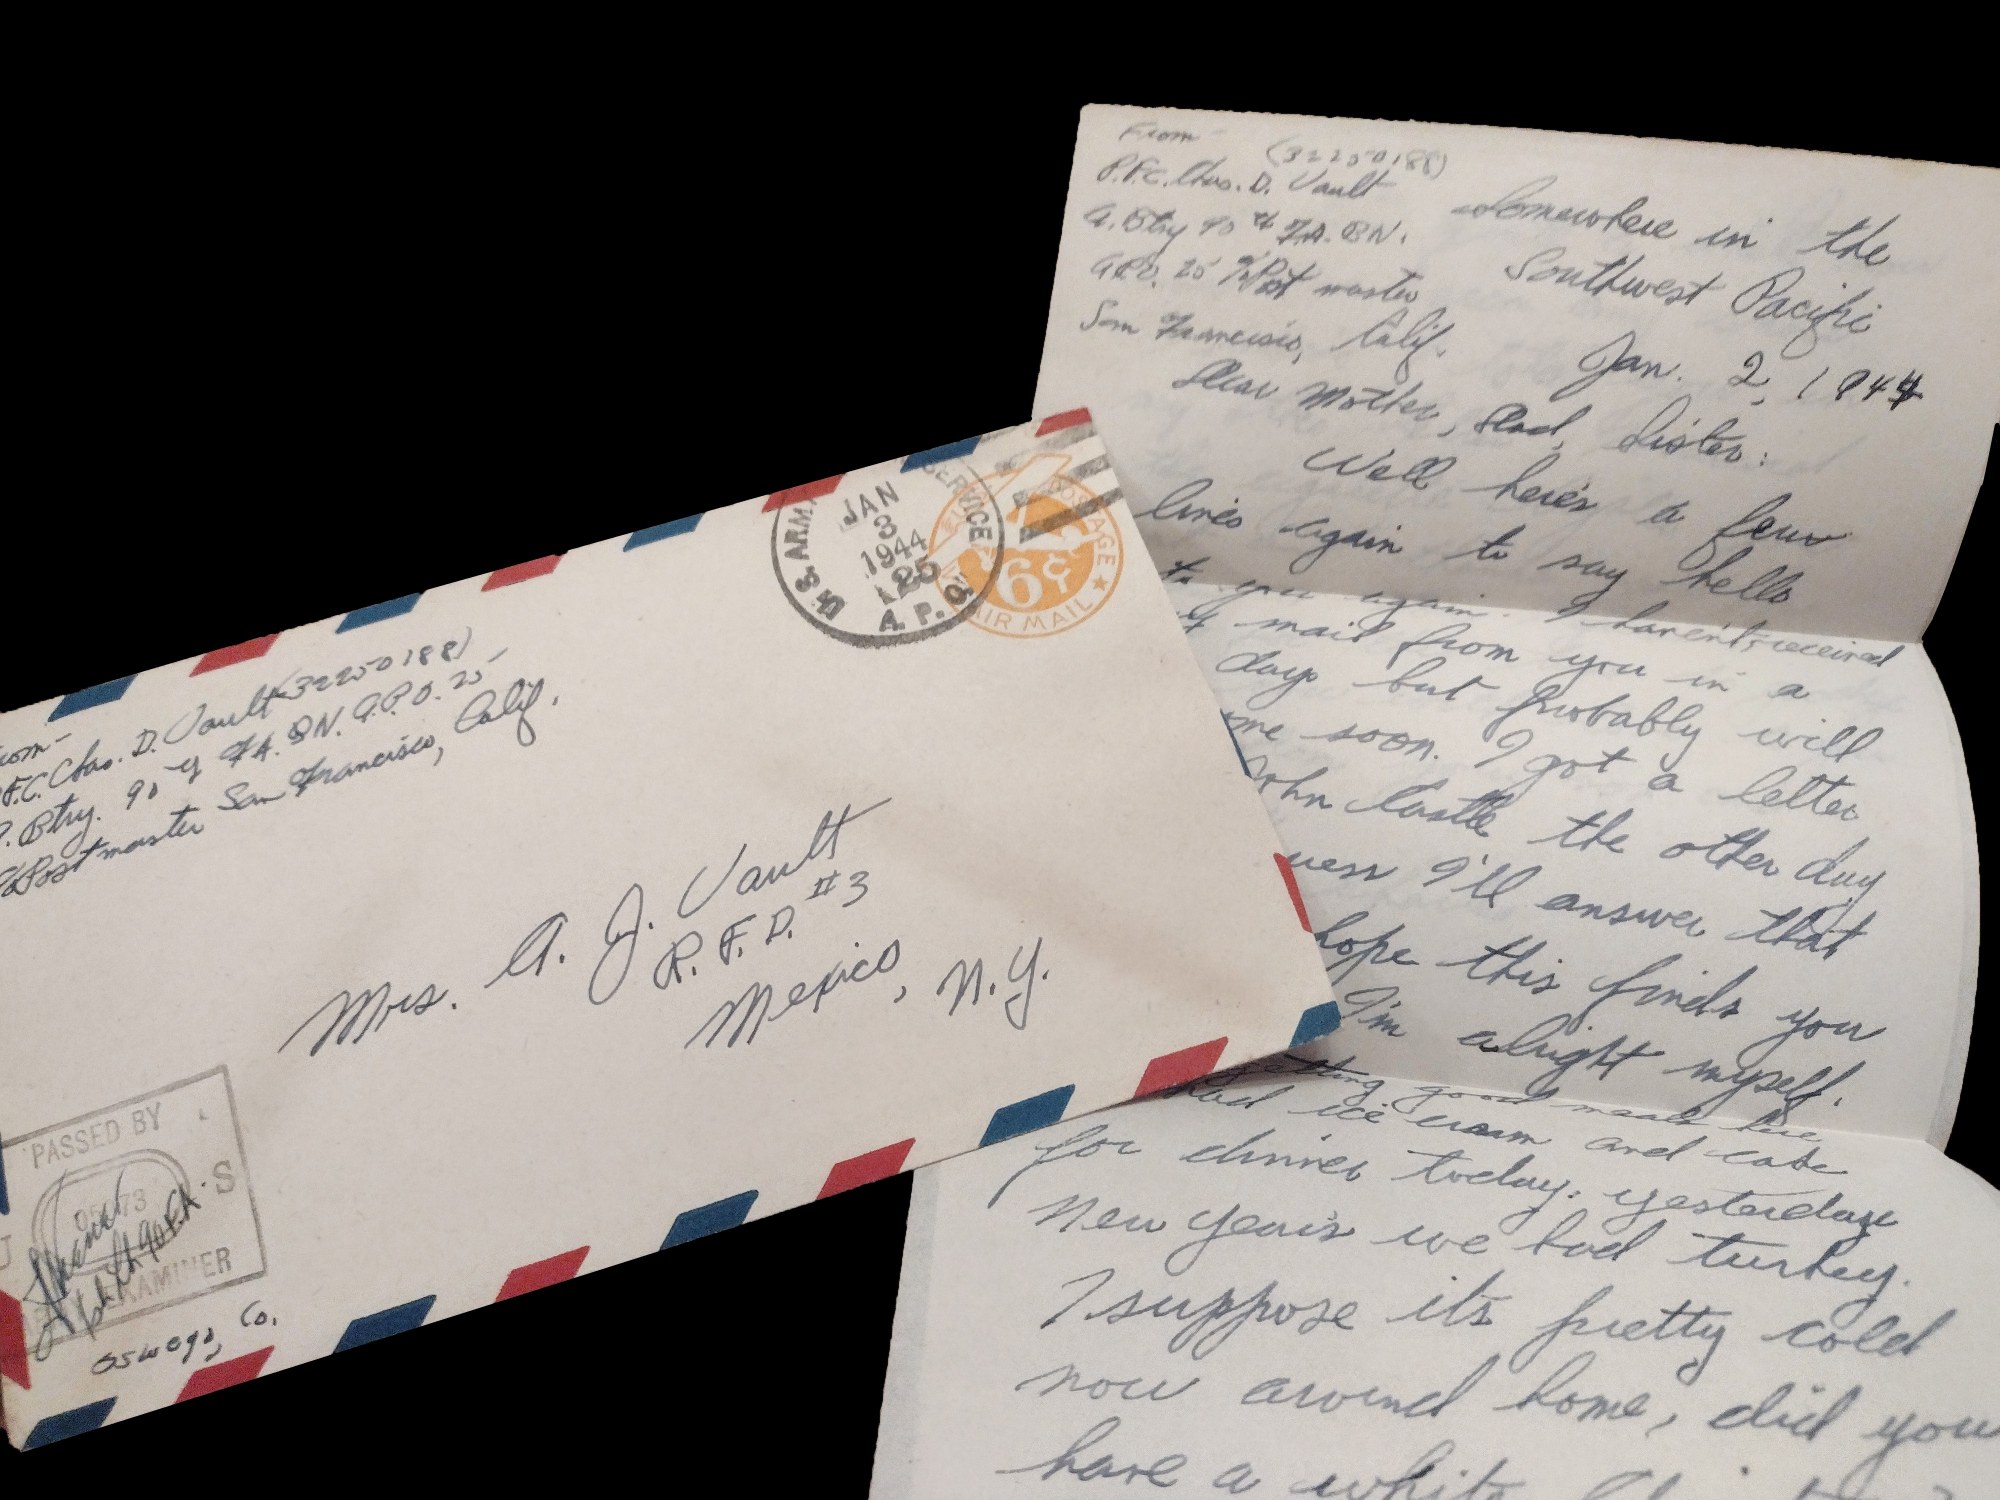 From-
P.F.C. Chas. D. Vault (32250188)
A. Btry. 90th F.A. BN. A.P.O. 25
c/o Postmaster San Francisco, Calif.
U.S. ARMY
SERVICE
JAN
3
1944
25
A.P.O.
POSTAGE
6¢
AIR MAIL
Mrs. A. J. Vault
R.F.D. #3
Mexico, N.Y.
PASSED BY
S
EXAMINER
Oswego, Co.
From-
(32250188)
P.F.C. Chas. D. Vault
A. Btry 90th F.A. BN.
A.P.O. 25 c/o Post master
San Francisco, Calif.
Somewhere in the
Southwest Pacific
Jan. 2, 1944
Dear Mother, Dad, Sister:
Well here's a few
lines again to say hello
to you again. I haven't received
mail from you in a
days but probably will
soon. I got a letter
John Castle the other day
I'll answer that
hope this finds you
I'm alright myself.
getting good meals here
had ice cream and cake
for dinner today. yesterday
New Years we had turkey.
I suppose its pretty cold
now around home, did you
have a white